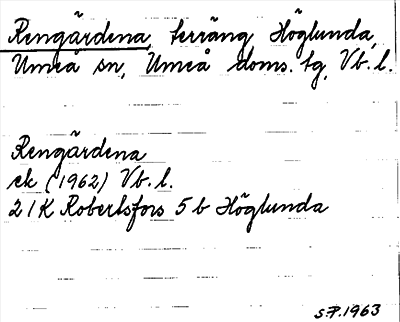 Rengärdena, terräng Höglunda,
Umeå sn, Umeå doms. tg, Vb. l.
Rengärdena
ek (1962) Vb. l.
21K Robertsfors 5 b Höglunda
S.P. 1963